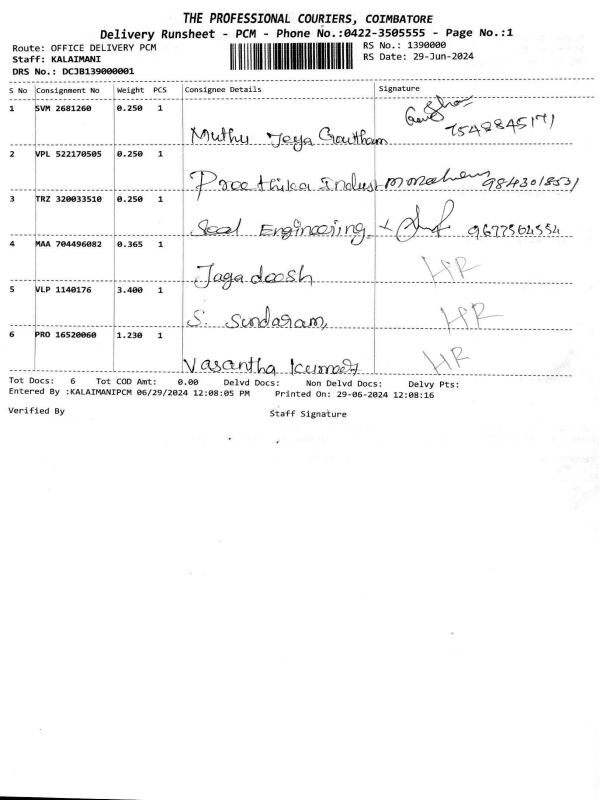 THE PROFESSIONAL COURIERS, COIMBATORE
Delivery Runsheet - PCM - Phone No.:0422-3505555 - Page No.:1
Route: OFFICE DELIVERY PCM RS No.: 1390000
Staff: KALAIMANI RS Date: 29-Jun-2024
DRS No.: DCJB139000001
S No Consignment No Weight PCS Consignee Details Signature
1 SVM 2681260 0.250 1
Muthu Jeya Goutham 7548845171
2 VPL 522170505 0.250 1
Preethika Indust 9843018531
3 TRZ 320033510 0.250 1
Seal Engineering 9677564554
4 MAA 704496082 0.365 1
Jagadeesh HR
5 VLP 1140176 3.400 1
S. Sundaram, HR
6 PRO 16520060 1.230 1
Vasantha Kumar HR
Tot Docs: 6 Tot COD Amt: 0.00 Delvd Docs: Non Delvd Docs: Delvy Pts:
Entered By :KALAIMANIPCM 06/29/2024 12:08:05 PM Printed On: 29-06-2024 12:08:16
Verified By Staff Signature